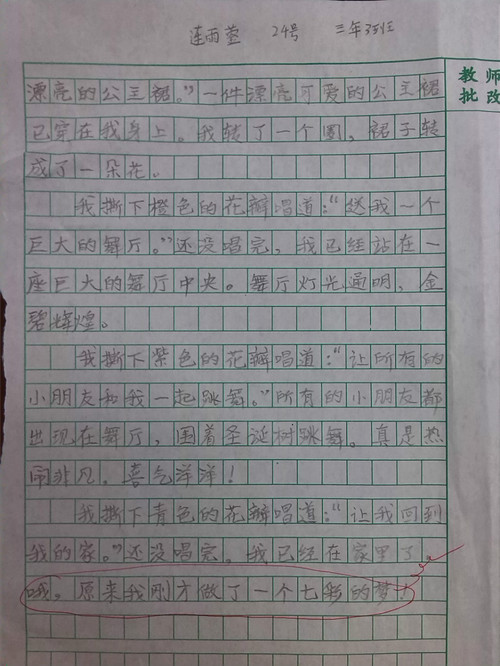 连雨萱 24号 三年3班
教师
批改
漂亮的公主裙。”一件漂亮可爱的公主裙
已穿在我身上。我转了一个圈，裙子转
成了一朵花。
我撕下橙色的花瓣唱道：“送我一个
巨大的舞厅。”还没唱完，我已经站在一
座巨大的舞厅中央。舞厅灯光通明，金
碧辉煌。
我撕下紫色的花瓣唱道：“让所有的
小朋友和我一起跳舞。”所有的小朋友都
出现在舞厅，围着圣诞树跳舞。真是热
闹非凡，喜气洋洋！
我撕下青色的花瓣唱道：“让我回到
我的家。”还没唱完，我已经在家里了。
哦。原来我刚才做了一个七彩的梦！